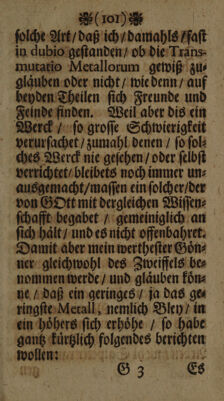 (101)
solche Art/ daß ich/ damahls/ fast
in dubio gestanden/ ob die Trans-
mutatio Metallorum gewiß zu-
gläuben oder nicht/ wie denn/ auf
beyden Theilen sich Freunde und
Feinde finden. Weil aber dis ein
Werck/ so grosse Schwierigkeit
verursachet/ zumahl denen/ so sol-
ches Werck nie gesehen/ oder selbst
verrichtet/ bleibets noch immer un-
ausgemacht/ massen ein solcher/ der
von GOtt mit dergleichen Wissen-
schafft begabet/ gemeiniglich an
sich hält/ und es nicht offenbahret.
Damit aber mein werthester Gön-
ner gleichwohl des Zweiffels be-
nommen werde/ und gläuben kön-
ne/ daß ein geringes/ ja das ge-
ringste Metall, nemlich Bley/ in
ein höhers sich erhöhe/ so habe
gantz kürtzlich folgendes berichten
wollen:
G 3 Es